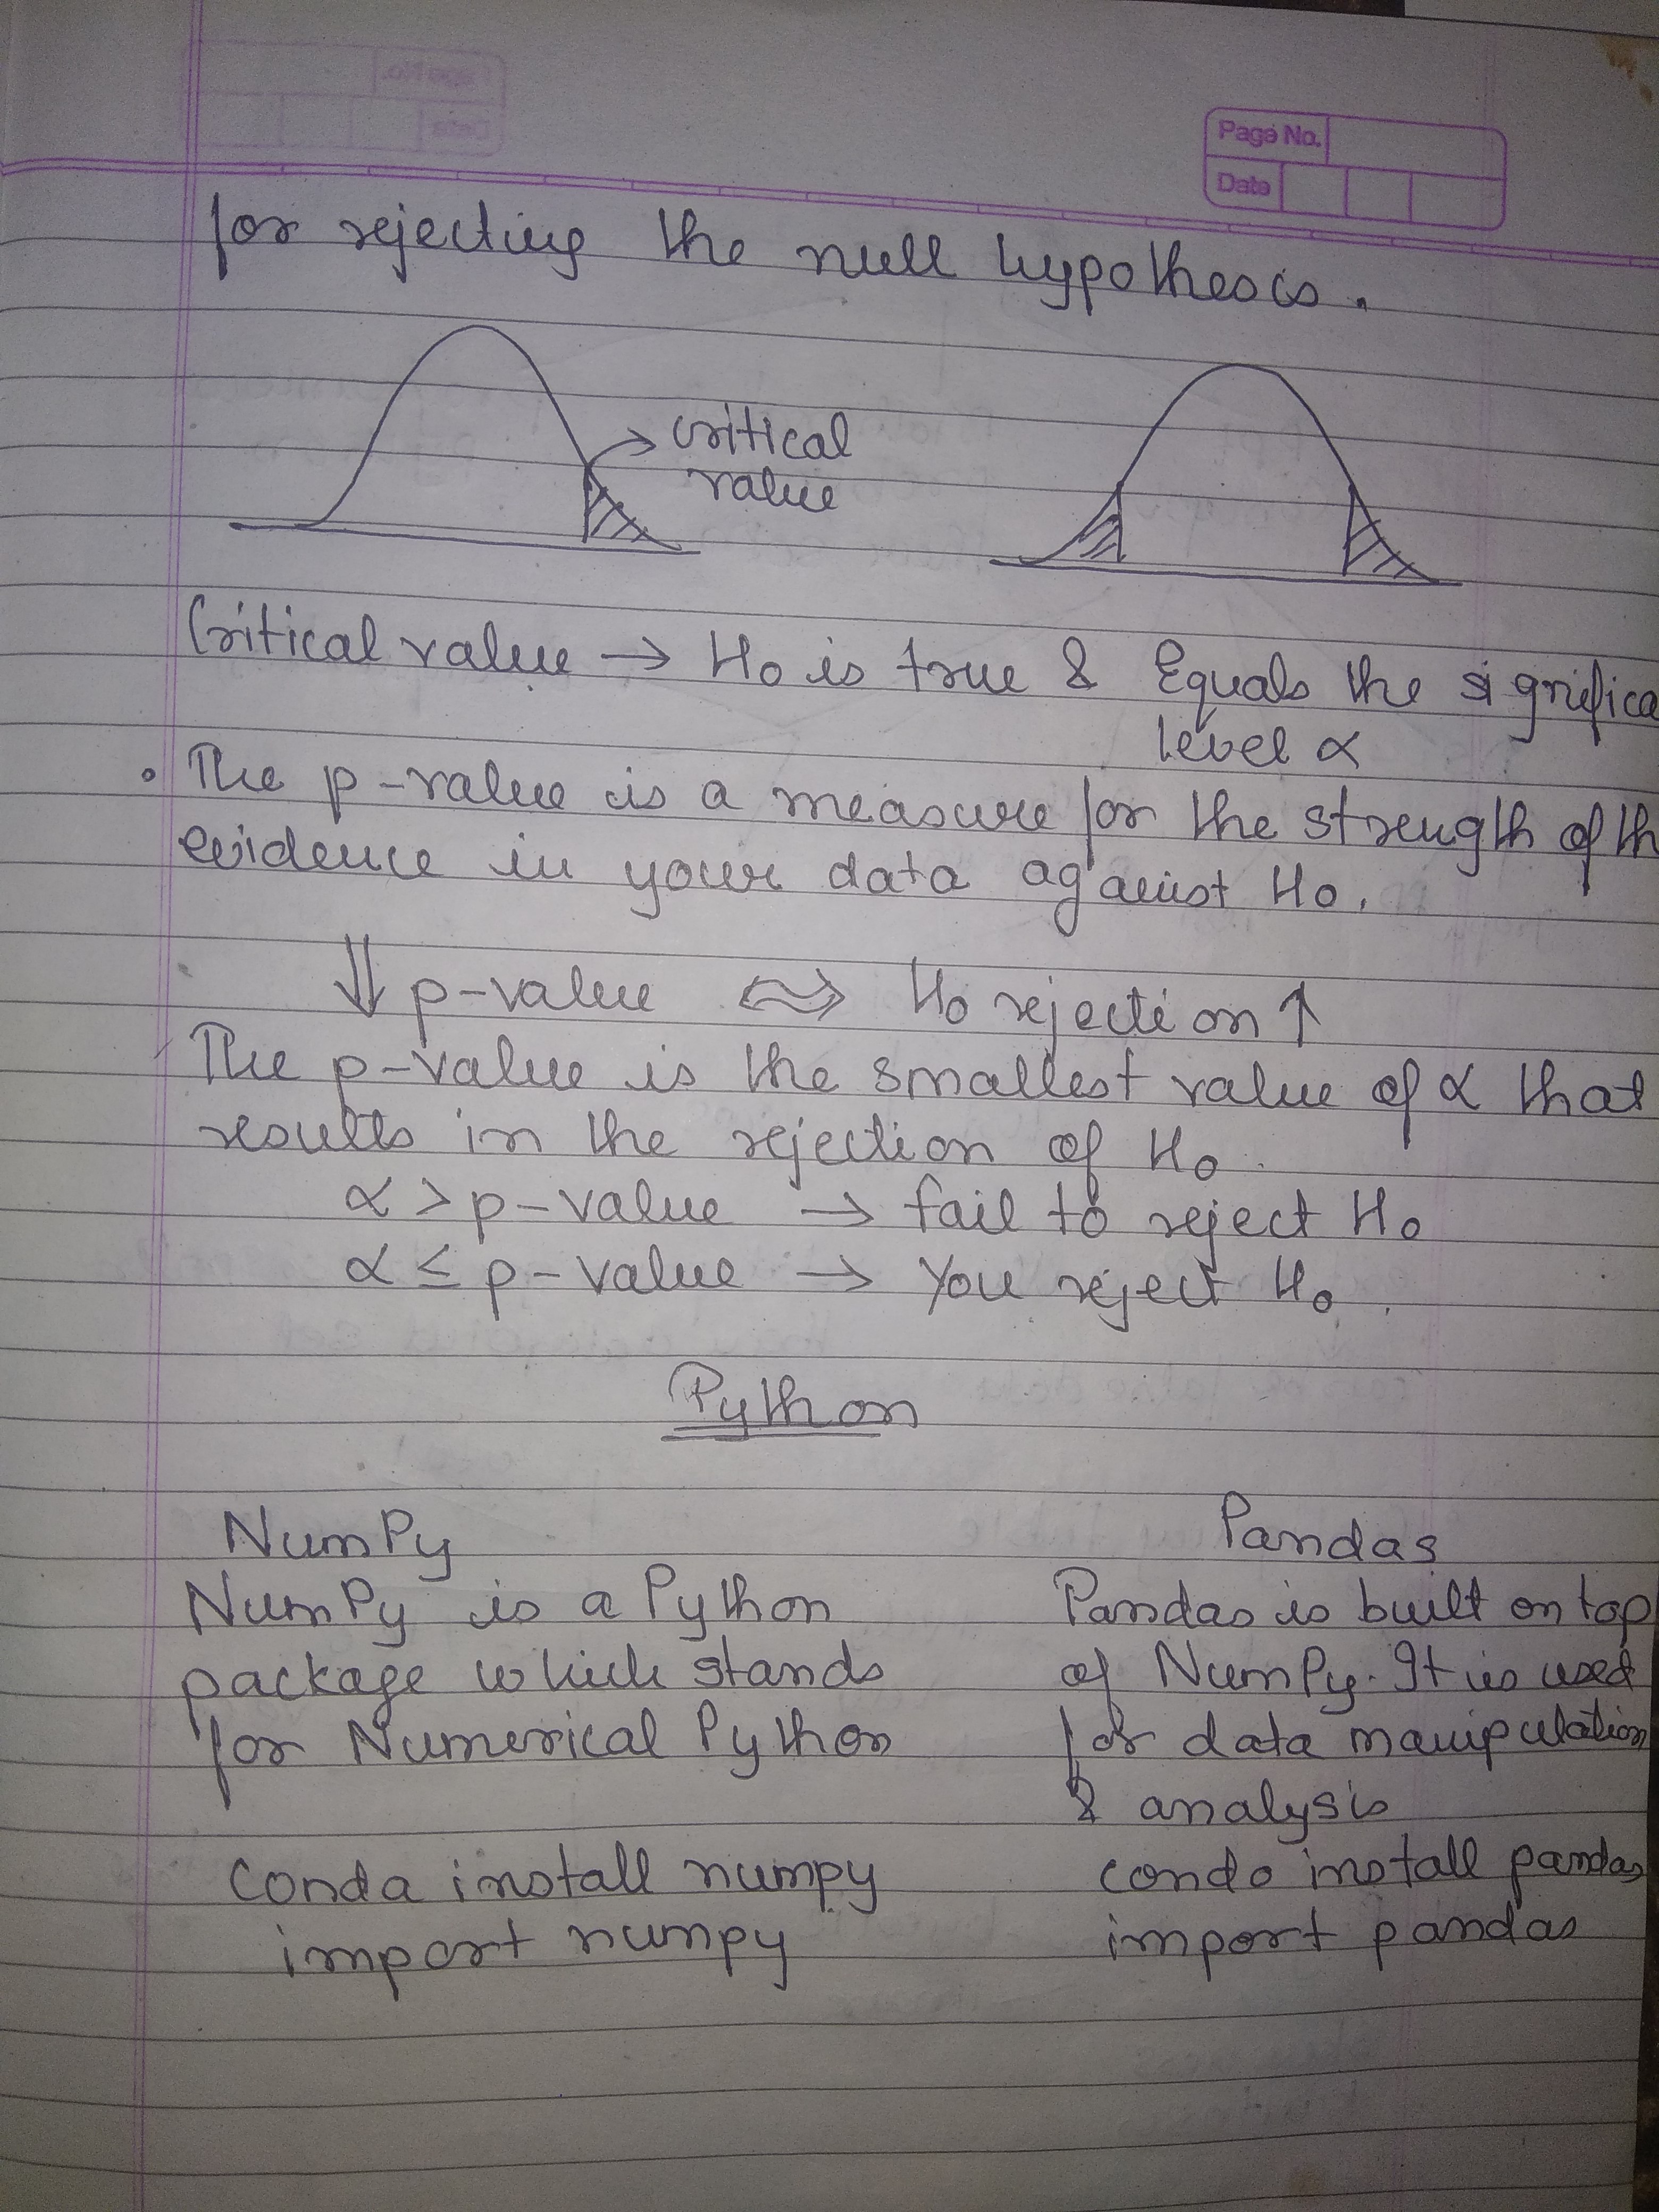 Page No.
Date
for rejecting the null hypothesis.
critical
value
Critical value → H₀ is true & Equals the significa
level α
• The p-value is a measure for the strength of th
evidence in your data against H₀.
⇓ p-value ⇔ H₀ rejection ↑
The p-value is the smallest value of α that
results in the rejection of H₀.
α > p-value → fail to reject H₀
α ≤ p-value → You reject H₀.
Python
NumPy
NumPy is a Python
package which stands
for Numerical Python
Conda install numpy
import numpy
Pandas
Pandas is built on top
of NumPy. It is used
for data manipulation
& analysis
conda install pandas
import pandas